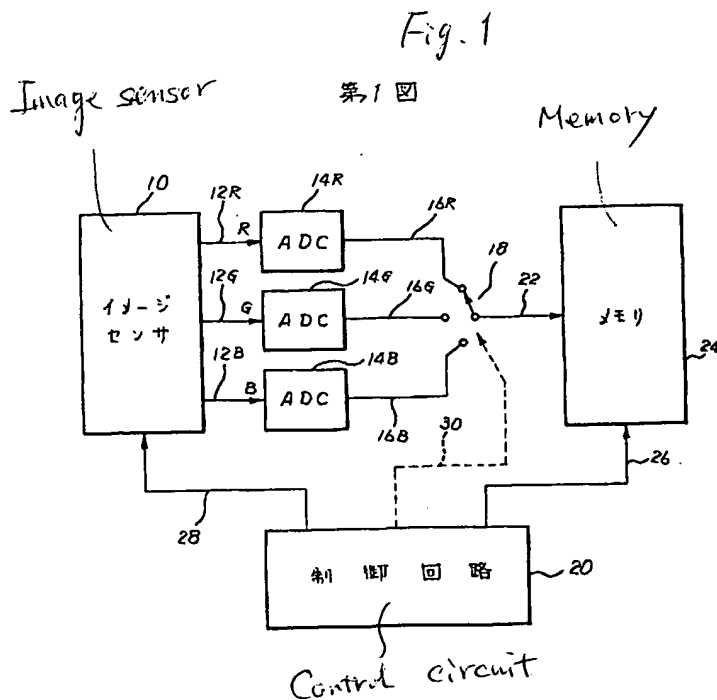 Fig. 1
第1図
Image sensor
Memory
10
12R
R
14R
ADC
16R
18
12G
G
14G
ADC
16G
22
イメージ
センサ
メモリ
24
12B
B
14B
ADC
16B
30
26
28
制御回路
20
Control circuit